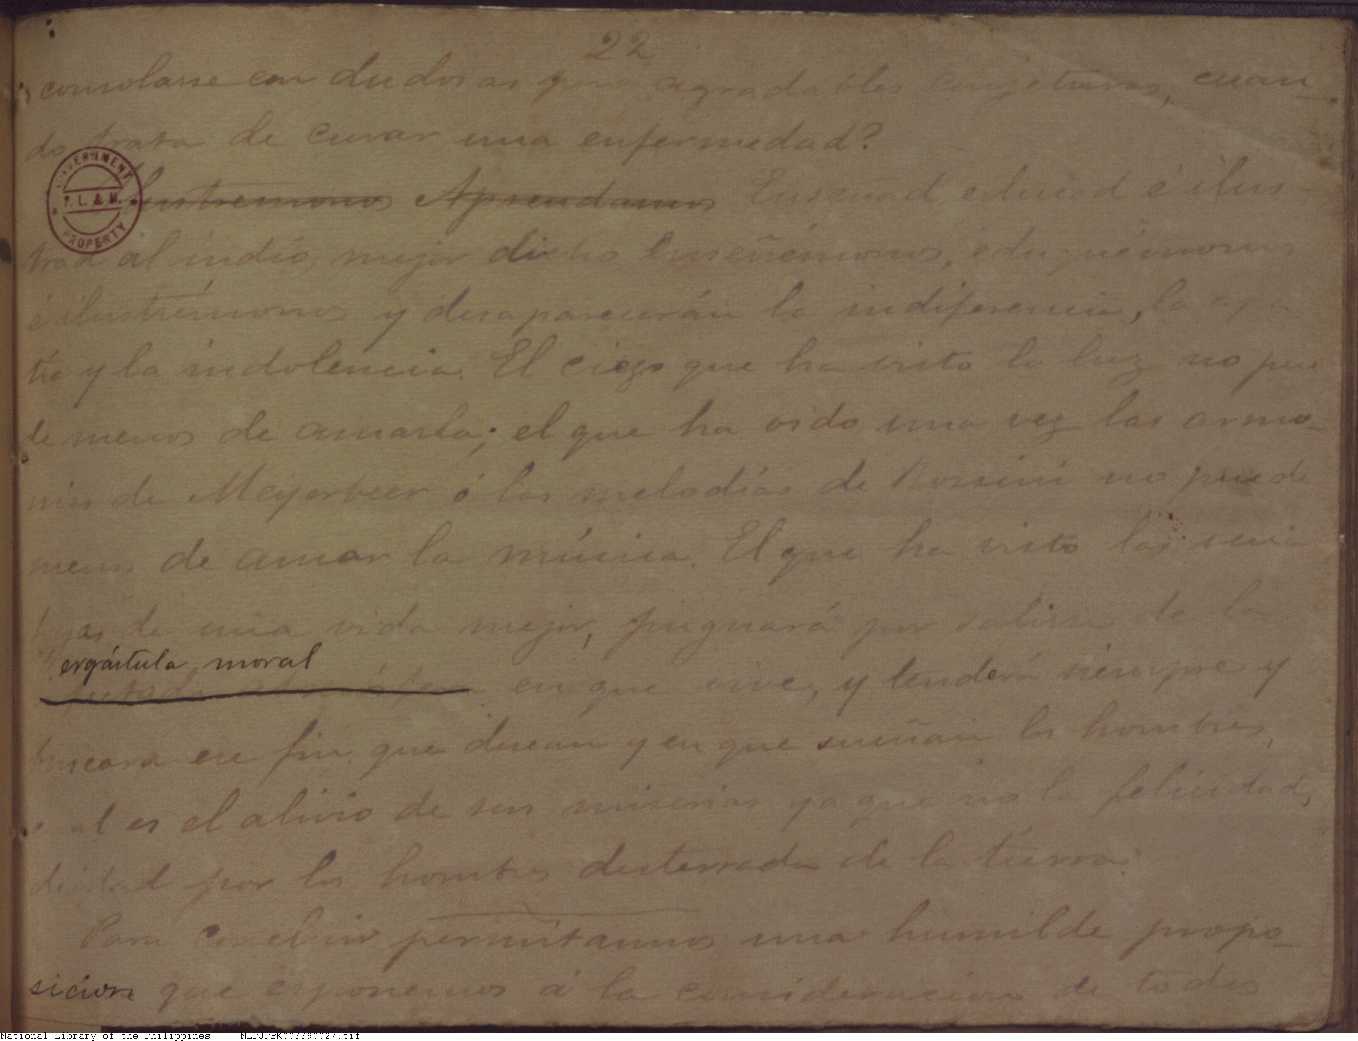 22
consolarse con dudosas pero agradables conjeturas, cuan-
do trata de curar una enfermedad?
Ilustremonos Aprendamos Enseñad, educad é ilus-
trad al indio, mejor dicho Enseñémonos, eduquémonos
é ilustrémonos y desaparecerán la indiferencia, la apa
tía y la indolencia. El ciego que ha visto la luz no pue
de menos de amarla; el que ha oido una vez las armo-
nias de Meyerbeer ó las melodías de Rossini no puede
menos de amar la música. El que ha visto las venta
jas de una vida mejor, pugnará por salirse de la
ergástula moral
en que vive, y tenderá siempre y
buscará ese fin que desean y en que sueñan los hombres,
cual es el alivio de sus miserias ya que no la felicidad,
deidad por los hombres desterrada de la tierra.
Para concluir permítannos una humilde propo-
sicion que exponemos á la consideracion de todos
GOVERNMENT
P.L. & M.
PROPERTY
National Library of the Philippines